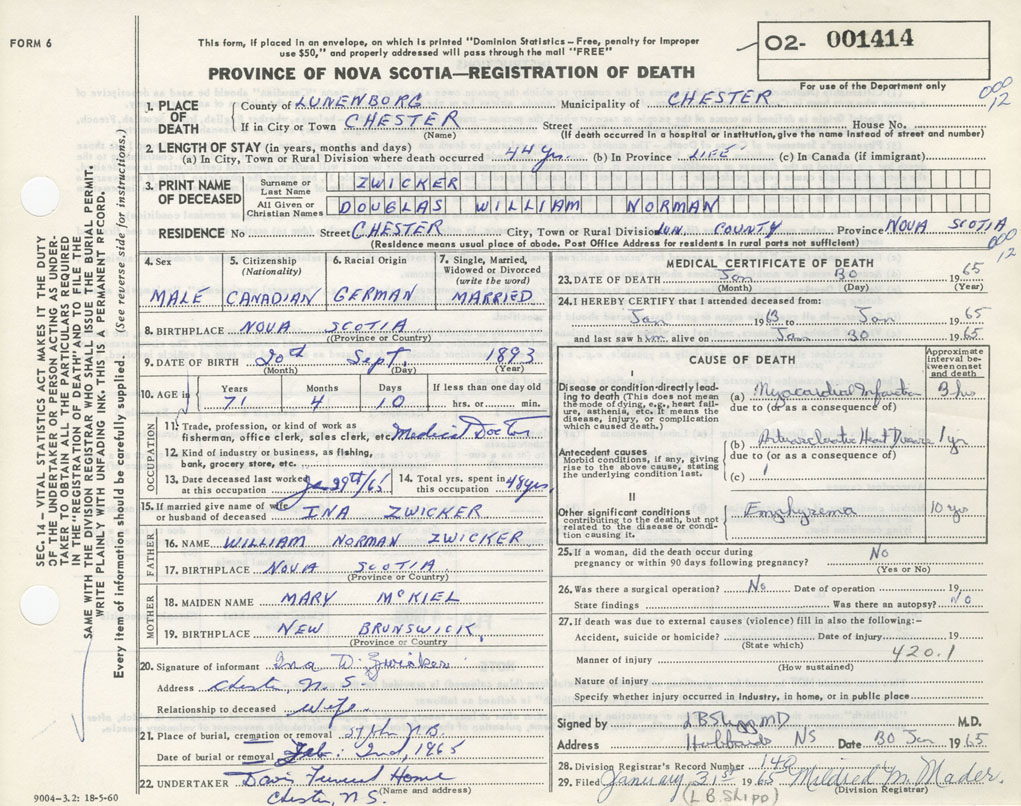 FORM 6
This form, if placed in an envelope, on which is printed "Dominion Statistics – Free, penalty for improper
use $50," and properly addressed will pass through the mail "FREE"
PROVINCE OF NOVA SCOTIA—REGISTRATION OF DEATH
O2- 001414
For use of the Department only
000
12
1. PLACE OF DEATH
County of LUNENBORG Municipality of CHESTER
If in City or Town CHESTER Street House No.
(Name) (If death occurred in a hospital or institution, give the name instead of street and number)
2. LENGTH OF STAY (in years, months and days)
(a) In City, Town or Rural Division where death occurred 44 yrs. (b) In Province LIFE (c) In Canada (if immigrant)
3. PRINT NAME OF DECEASED
Surname or Last Name ZWICKER
All Given or Christian Names DOUGLAS WILLIAM NORMAN
RESIDENCE No Street CHESTER City, Town or Rural Division LUN. COUNTY Province NOVA SCOTIA
(Residence means usual place of abode. Post Office Address for residents in rural parts not sufficient)
000
12
SEC. 14 – VITAL STATISTICS ACT MAKES IT THE DUTY
OF THE UNDERTAKER OR PERSON ACTING AS UNDER-
TAKER TO OBTAIN ALL THE PARTICULARS REQUIRED
IN THE "REGISTRATION OF DEATH" AND TO FILE THE
SAME WITH THE DIVISION REGISTRAR WHO SHALL ISSUE THE BURIAL PERMIT.
WRITE PLAINLY WITH UNFADING INK. THIS IS A PERMANENT RECORD.
Every item of information should be carefully supplied. (See reverse side for instructions.)
4. Sex MALE
5. Citizenship (Nationality) CANADIAN
6. Racial Origin GERMAN
7. Single, Married, Widowed or Divorced (write the word) MARRIED
8. BIRTHPLACE NOVA SCOTIA
(Province or Country)
9. DATE OF BIRTH 20th Sept 1893
(Month) (Day) (Year)
10. AGE in Years 71 Months 4 Days 10 If less than one day old hrs. or min.
OCCUPATION
11. Trade, profession, or kind of work as
fisherman, office clerk, sales clerk, etc. Medical Doctor
12. Kind of industry or business, as fishing,
bank, grocery store, etc.
13. Date deceased last worked at this occupation Jan 29th/65
14. Total yrs. spent in this occupation 48 yrs.
15. If married give name of wife
or husband of deceased INA ZWICKER
FATHER
16. NAME WILLIAM NORMAN ZWICKER
17. BIRTHPLACE NOVA SCOTIA
(Province or Country)
MOTHER
18. MAIDEN NAME MARY McKIEL
19. BIRTHPLACE NEW BRUNSWICK
(Province or Country
20. Signature of informant Ina D. Zwicker
Address Chester, N.S.
Relationship to deceased Wife
21. Place of burial, cremation or removal N.S.
Date of burial or removal Feb. 2nd, 1965
22. UNDERTAKER Davis Funeral Home
(Name and address)
Chester, N.S.
9004–3.2: 18-5-60
MEDICAL CERTIFICATE OF DEATH
23. DATE OF DEATH Jan 30 1965
(Month) (Day) (Year)
24. I HEREBY CERTIFY that I attended deceased from:
Jan 1963 to Jan 1965
and last saw him alive on Jan 30 1965
CAUSE OF DEATH
Approximate interval between onset and death
I
Disease or condition directly lead-
ing to death (This does not mean
the mode of dying, e.g., heart failure,
asthenia, etc. It means the
disease, injury, or complication
which caused death.)
(a) Myocardial Infarction 3 hrs
due to (or as a consequence of)
Antecedent causes
Morbid conditions, if any, giving
rise to the above cause, stating
the underlying condition last.
(b) Arteriosclerotic Heart Disease 1 yr
due to (or as a consequence of)
(c)
II
Other significant conditions
contributing to the death, but not
related to the disease or condi-
tion causing it.
Emphyzema 10 yrs
25. If a woman, did the death occur during
pregnancy or within 90 days following pregnancy? No
(Yes or No)
26. Was there a surgical operation? No Date of operation 19
State findings Was there an autopsy? NO
27. If death was due to external causes (violence) fill in also the following:–
Accident, suicide or homicide? Date of injury 19
(State which)
Manner of injury 420.1
(How sustained)
Nature of injury
Specify whether injury occurred in industry, in home, or in public place
Signed by LB Shipp MD M.D.
Address Hubbards NS Date 30 Jan 1965
28. Division Registrar's Record Number 140
29. Filed January 31st 1965 Mildred M. Mader.
(Division Registrar)
(L.B. Shipp)